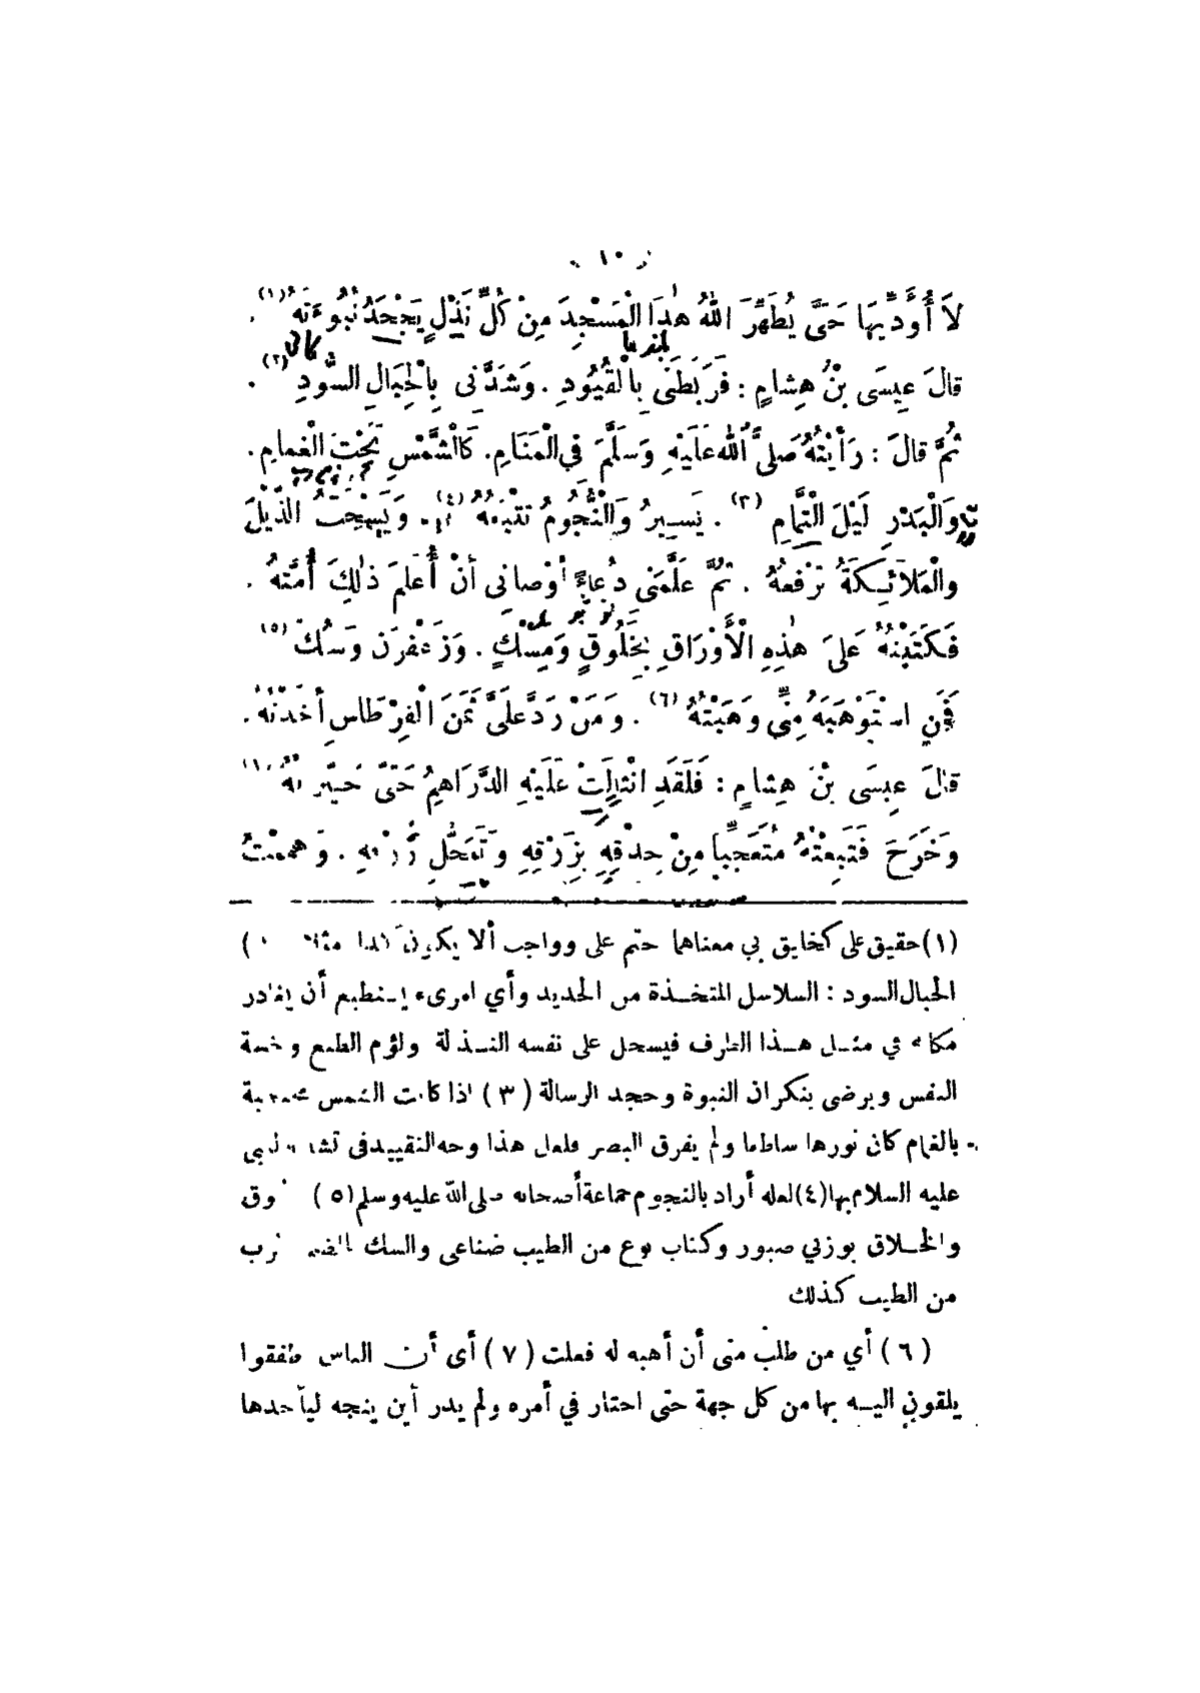 ( ١٠ )
لاَ أُؤَدِّيهَا حَتَّى يُطَهِّرَ اللّٰهُ هٰذَا الْمَسْجِدَ مِنْ كُلِّ نَذْلٍ يَجْحَدُ نُبُوءَتَهُ (١) .
قالَ عِيسَى بْنُ هِشامٍ : فَرَبَطَنِى بِالْقُيُودِ . وَشَدَّنى بِالْحِبَالِ السُّودِ (٢) .
ثُمَّ قالَ : رَأَيْتُهُ صَلىَّ ٱللّٰه عَلَيْهِ وَسَلَّمَ فِي الْمَنَامِ. كَاُلشَّمْسِ تَحْتَ الْغَمامِ .
وَالْبَدْرِ لَيْلَ التَّمَامِ (٣) . يَسِيرُ وَالنُّجُومُ تَتْبَعُهُ (٤) . وَيَسْحَبُ الذَّيْلَ
والْمَلاَئِكَةُ تَرْفَعُهُ . ثُمَّ عَلَّمَنى دُعاءً أَوْصانِى أنْ أُعَلِّمَ ذٰلِكَ أُمَّتَهُ .
فَكَتَبْتُهُ عَلَىَ هٰذِهِ الْأَوْرَاقِ بِخَلُوقٍ وَمِسْكٍ . وَزَعْفَرَن وَسُكّ (٥)
فَمَنِ اسْتَوْهَبَهُ مِنِّى وَهَبْتُهُ (٦) . وَمَنْ رَدَّ عَلَىَّ ثَمَنَ الْقِرْطَاسِ أَخَذْتُهُ .
قالَ عِيسَى بْنُ هِشامٍ : فَلَقَدِ انْثَالَتْ عَلَيْهِ الدَّرَاهِمُ حَتَّى حَيَّرَتْهُ
وَخَرَجَ فَتَبِعْتُهُ مُتَعَجِّبًا مِنْ حِذْقِهِ بِزَرْقِهِ وَتَمَحُّلِ رِزْقِهِ . وَهَمَمْتُ
(١) حقيق على كخايق بي معناهما حتم على وواجب ألا يكون
الحبال السود : السلاسل المتخذة من الحديد وأي امرىء يستطيع أن يغادر
مكانه في مثل هذا الظرف فيسجل على نفسه النذالة ولؤم الطبع وخسة
النفس ويرضى بنكران النبوة وجحد الرسالة ( ٣ ) اذا كانت الشمس محجوبة
بالغمام كان نورها ساطعا ولم يفرق البصر فلعل هذا وجه التقييد فى تشبيه النبى
عليه السلام بها (٤) لعله أراد بالنجوم جماعة أصحابه صلى الله عليه وسلم (٥)
والخلاق بوزني صبور وكتاب نوع من الطيب ضناعى والسك بالضم ضرب
من الطيب كذلك
( ٦ ) أي من طلب منى أن أهبه له فعلت ( ٧ ) أى أن الناس طفقوا
يلقون اليه بها من كل جهة حتى احتار في أمره ولم يدر أين يتجه ليأخذها